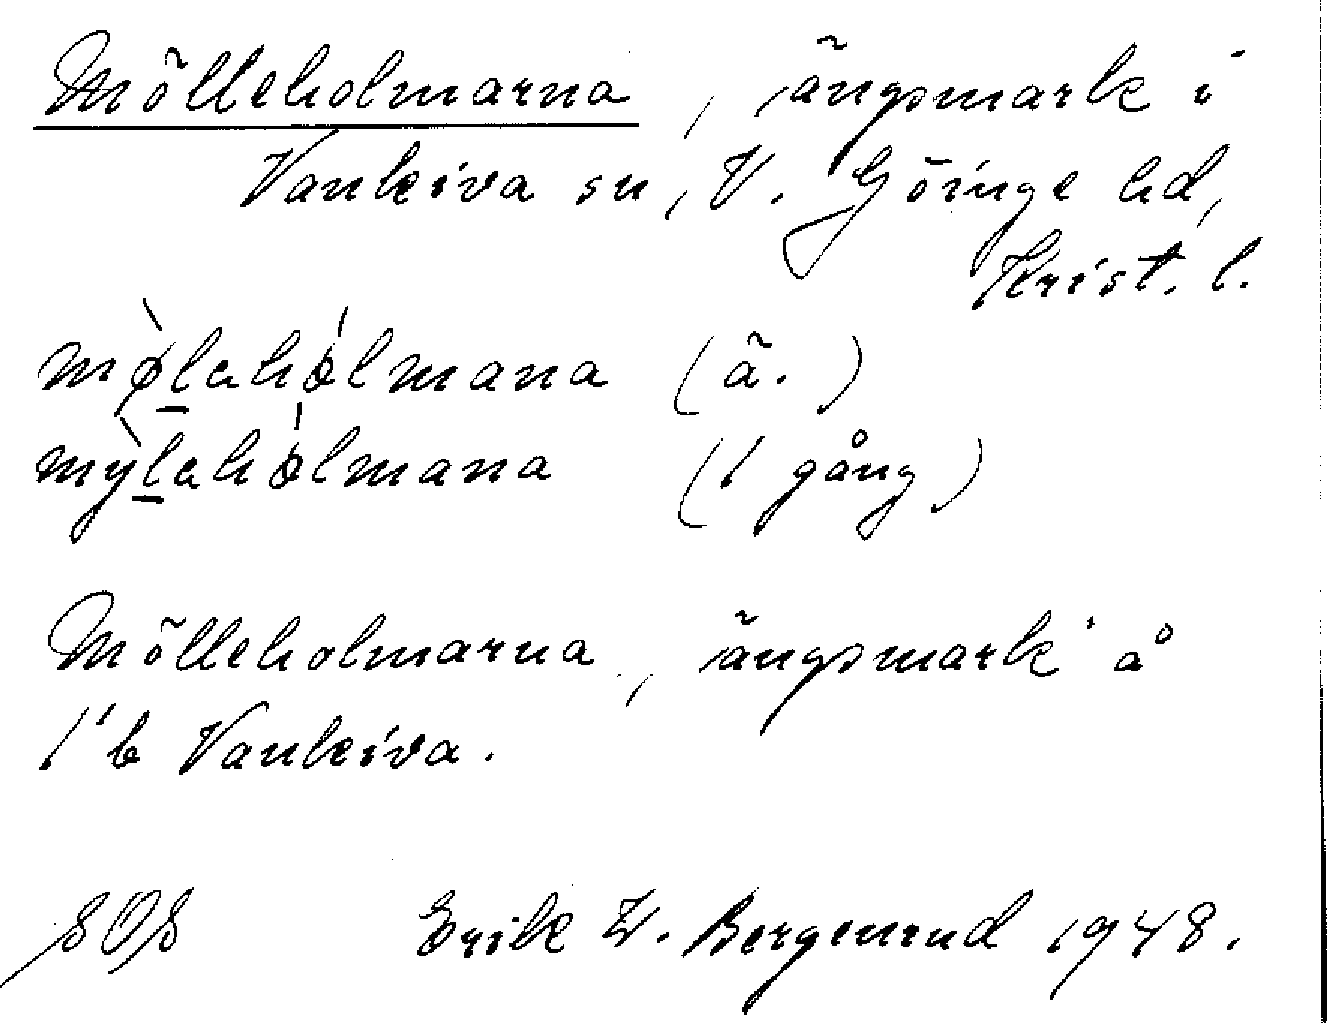 Mölleholmarna, ängsmark i
Vankiva sn, V. Göinge hd,
Krist. l.
mø̀lahólmana (ä.)
mỳlahólmana (1 gång)
Mölleholmarna, ängsmark å
1'b Vankiva.
SOS Erik W. Bergenrud 1948.